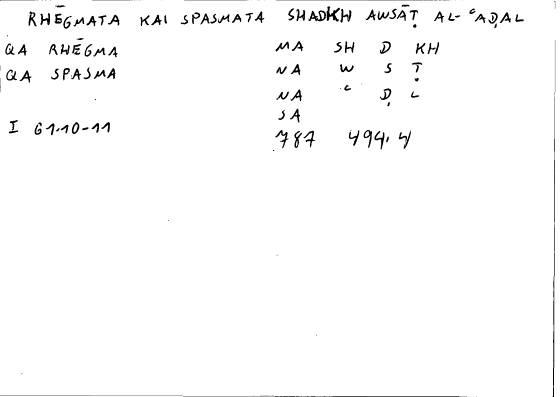 RHĒGMATA KAI SPASMATA SHADKH AWSĀṬ AL-ʿAḌAL
QA RHĒGMA MA SH D KH
QA SPASMA NA W S Ṭ
NA ʿ Ḍ L
SA
I 61.10-11 787 494.4